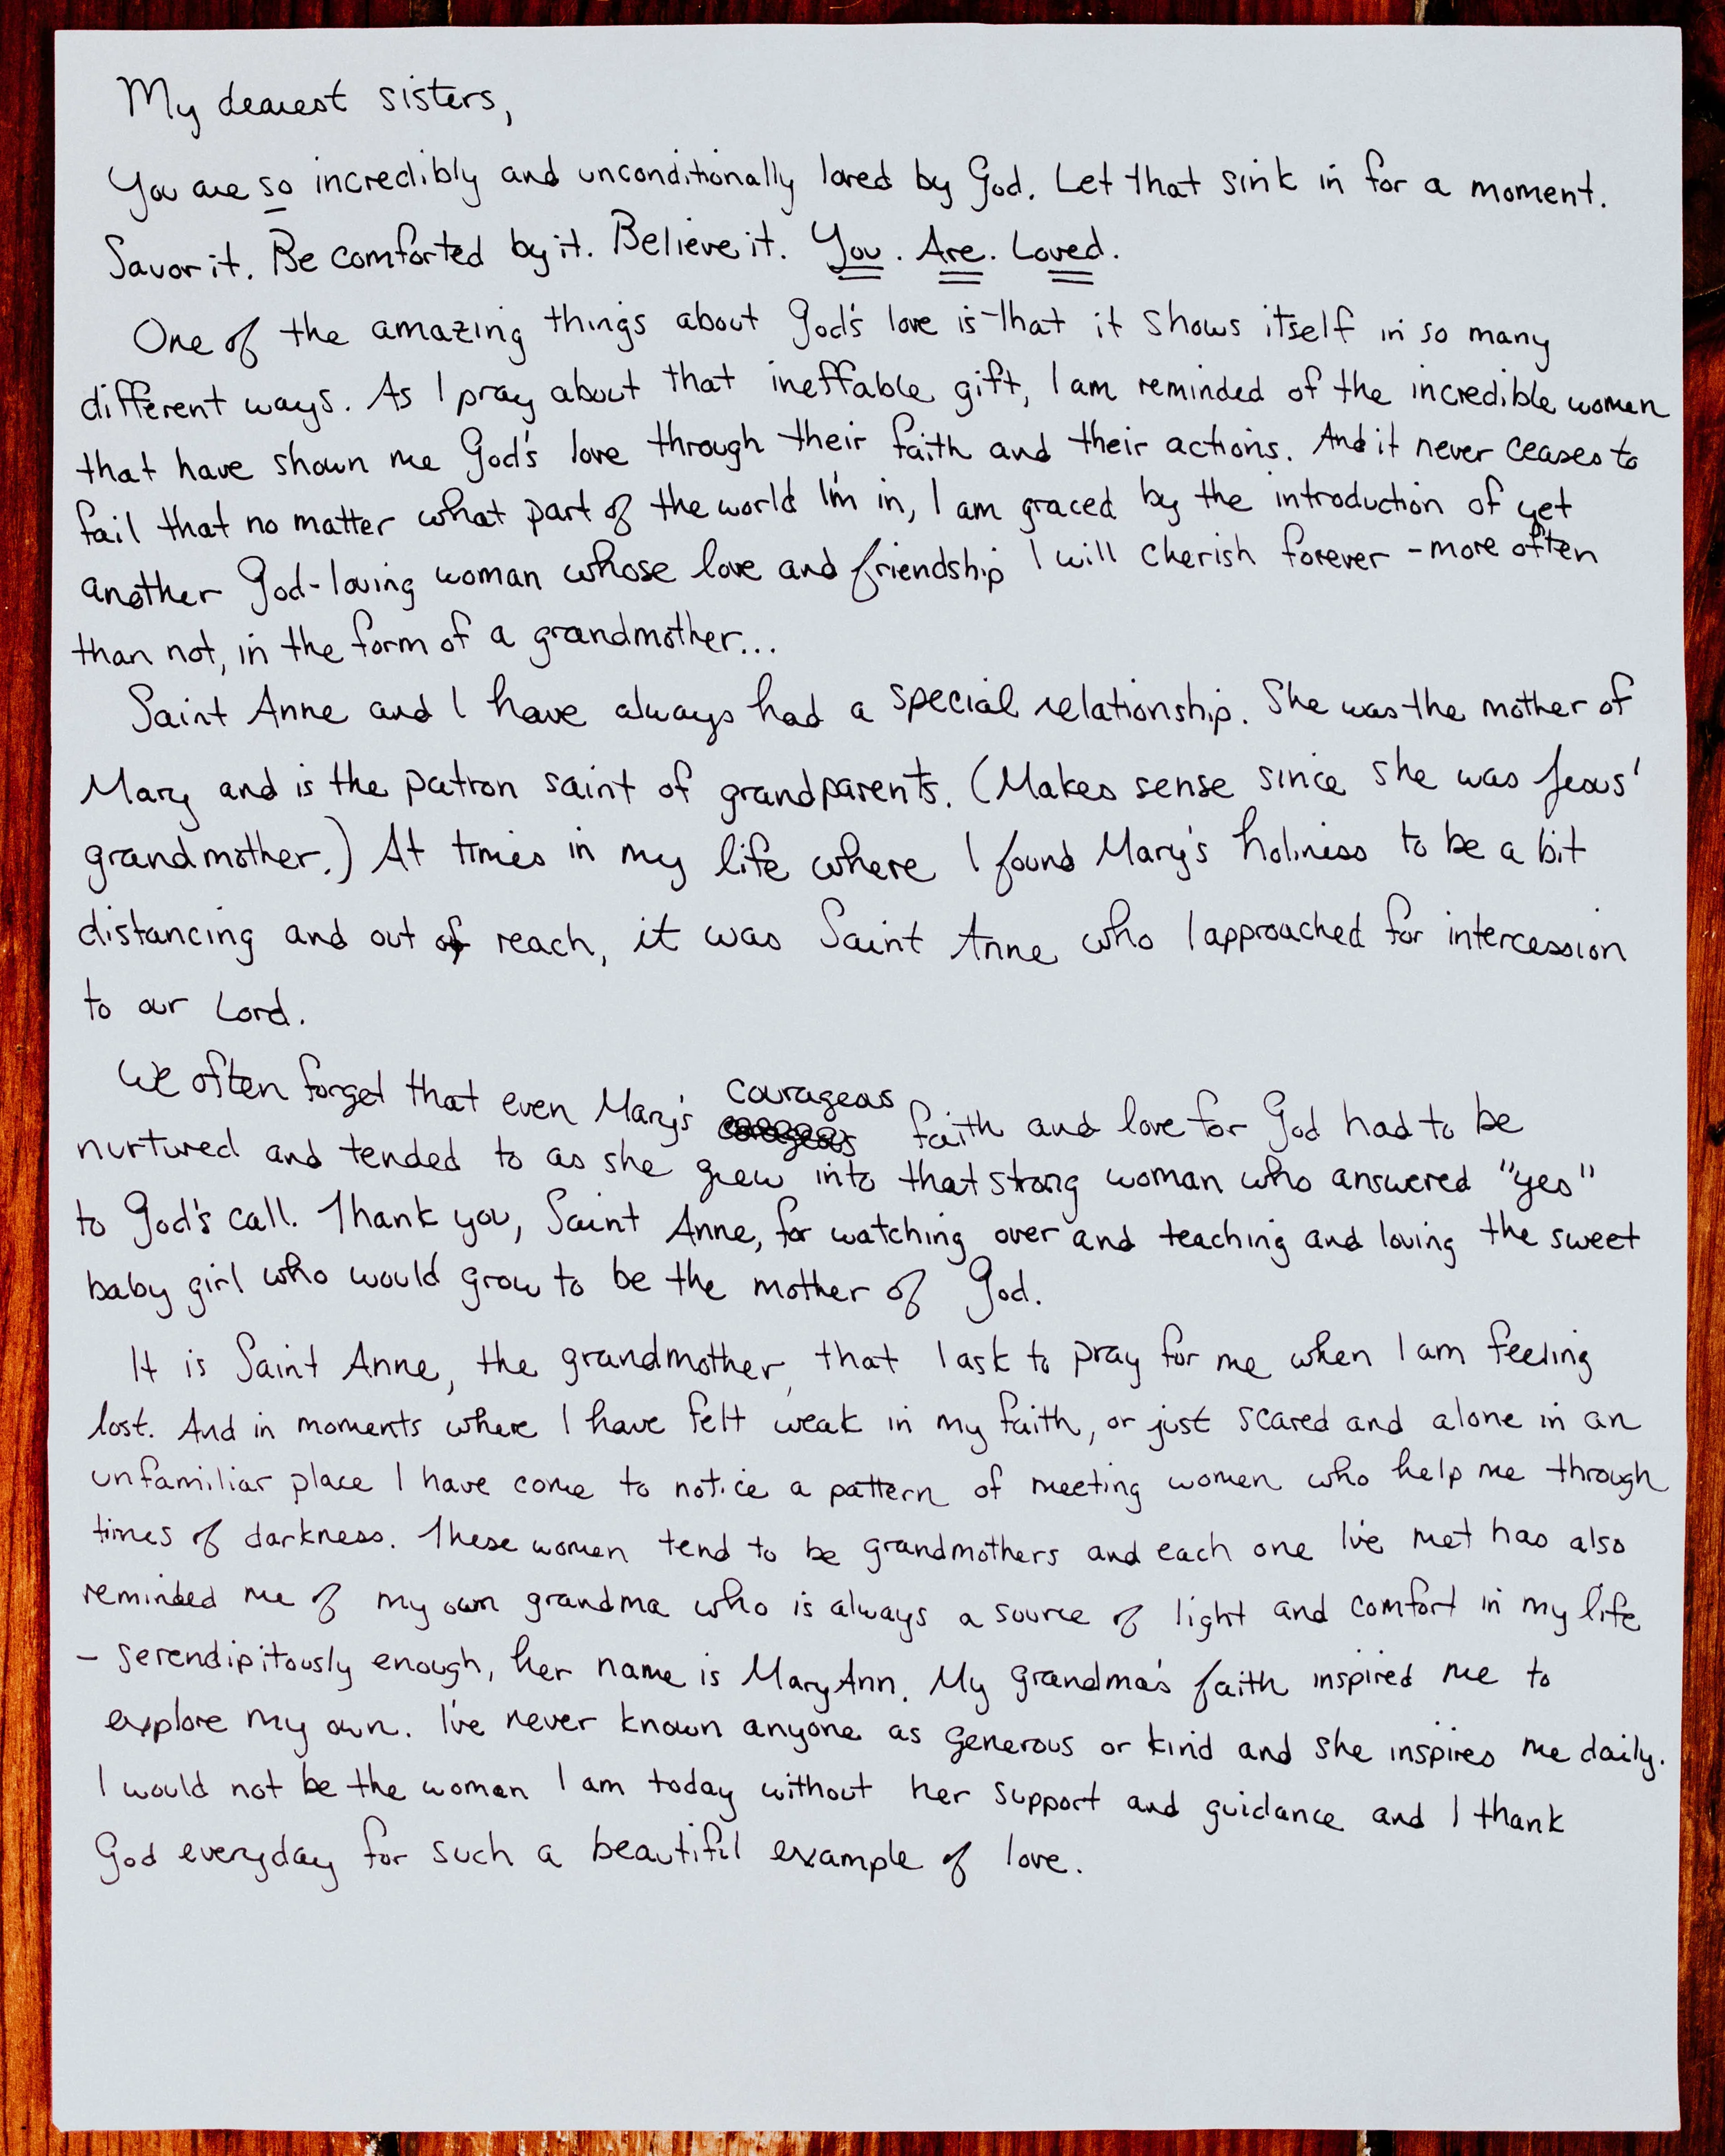 My dearest sisters,
You are so incredibly and unconditionally loved by God. Let that sink in for a moment.
Savor it. Be comforted by it. Believe it. You. Are. Loved.
One of the amazing things about God's love is that it shows itself in so many
different ways. As I pray about that ineffable gift, I am reminded of the incredible women
that have shown me God's love through their faith and their actions. And it never ceases to
fail that no matter what part of the world I'm in, I am graced by the introduction of yet
another God-loving woman whose love and friendship I will cherish forever - more often
than not, in the form of a grandmother...
Saint Anne and I have always had a special relationship. She was the mother of
Mary and is the patron saint of grandparents. (Makes sense since she was Jesus'
grandmother.) At times in my life where I found Mary's holiness to be a bit
distancing and out of reach, it was Saint Anne who I approached for intercession
to our Lord.
We often forget that even Mary's courageous faith and love for God had to be
nurtured and tended to as she grew into that strong woman who answered "yes"
to God's call. Thank you, Saint Anne, for watching over and teaching and loving the sweet
baby girl who would grow to be the mother of God.
It is Saint Anne, the grandmother, that I ask to pray for me when I am feeling
lost. And in moments where I have felt weak in my faith, or just scared and alone in an
unfamiliar place I have come to notice a pattern of meeting women who help me through
times of darkness. These women tend to be grandmothers and each one I've met has also
reminded me of my own grandma who is always a source of light and comfort in my life
- serendipitously enough, her name is MaryAnn. My grandma's faith inspired me to
explore my own. I've never known anyone as generous or kind and she inspires me daily.
I would not be the woman I am today without her support and guidance and I thank
God everyday for such a beautiful example of love.